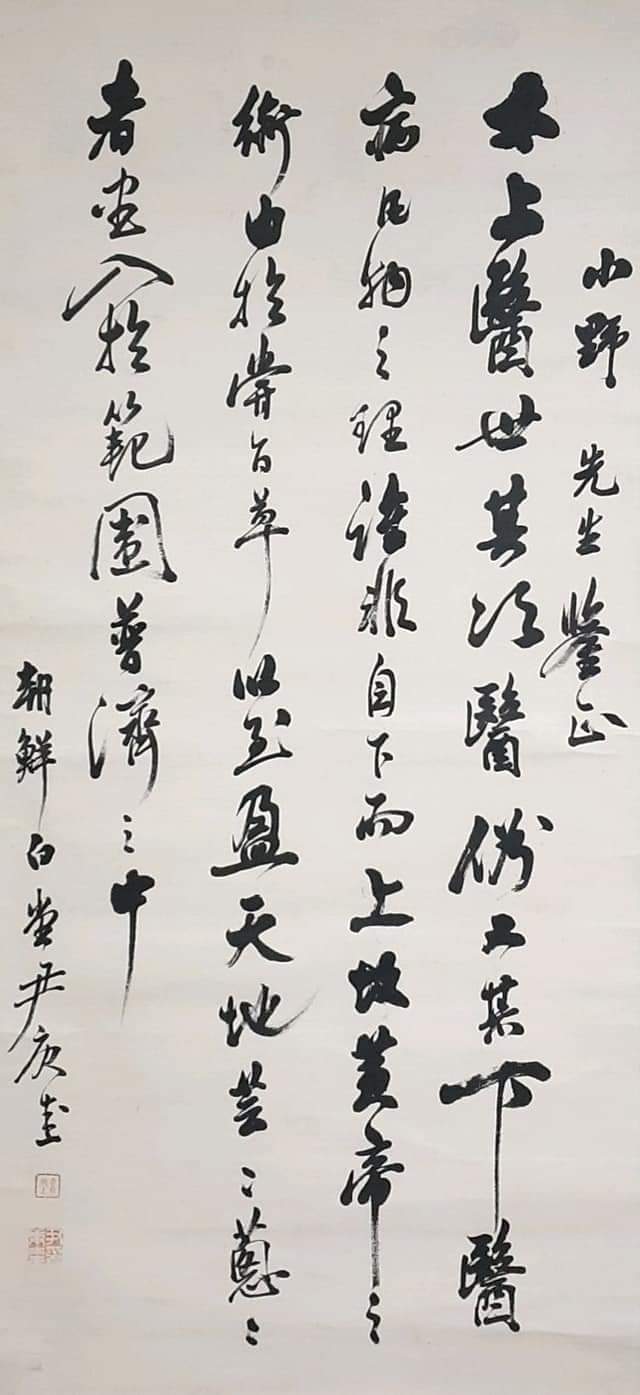 小野 先生 鑒正
上醫世其次醫其下醫
病凡物之理非自下而上故黃帝之
術由於嘗百草以至盈天地芸〻蔥〻
者入於範圍普濟之中
朝鮮白堂尹庚